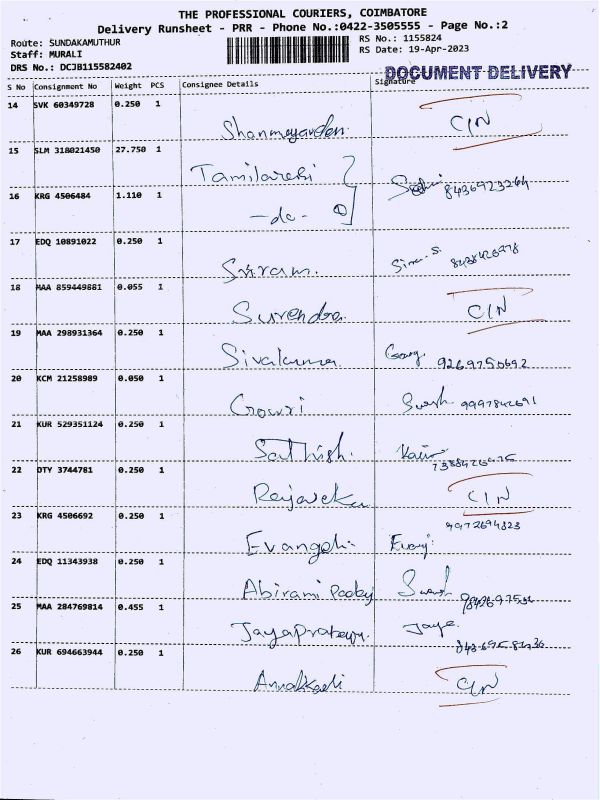 THE PROFESSIONAL COURIERS, COIMBATORE
Delivery Runsheet - PRR - Phone No.:0422-3505555 - Page No.:2
Route: SUNDAKAMUTHUR
Staff: MURALI
DRS No.: DCJB115582402
RS No.: 1155824
RS Date: 19-Apr-2023
DOCUMENT DELIVERY
S No Consignment No Weight PCS Consignee Details Signature
14 SVK 60349728 0.250 1 C/N
15 SLM 318021450 27.750 1 Tamilarshi
16 KRG 4506484 1.110 1 -do-
17 EDQ 10891022 0.250 1 Sriram.
18 MAA 859449881 0.055 1 Surendra. C/N
19 MAA 298931364 0.250 1 Sivakumar 9269750692
20 KCM 21258989 0.050 1 Gowri Suresh 9997842691
21 KUR 529351124 0.250 1 Sathish.
22 DTY 3744781 0.250 1 C/N
23 KRG 4506692 0.250 1 9972694323
24 EDQ 11343938 0.250 1 Abirami
25 MAA 284769814 0.455 1 Jaya
26 KUR 694663944 0.250 1 C/N